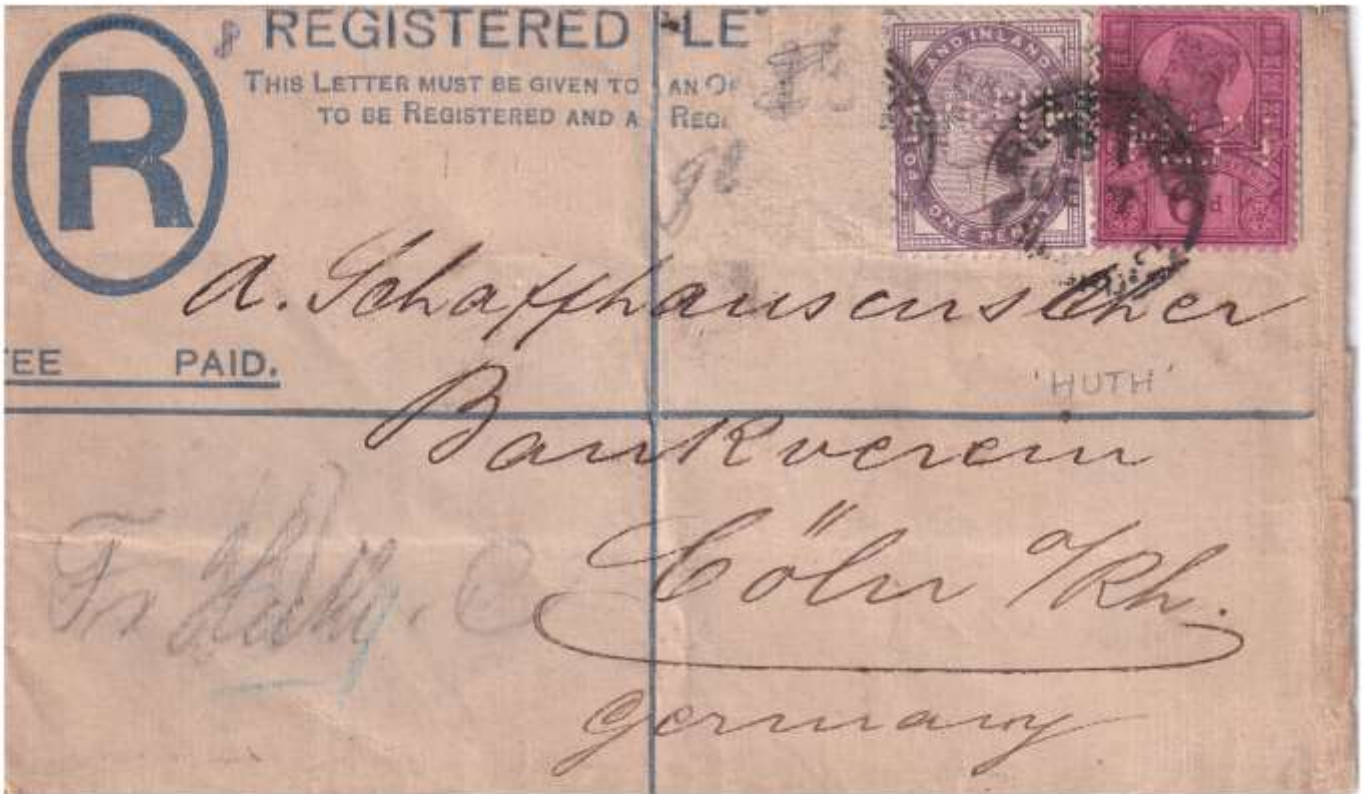 R
REGISTERED LE
THIS LETTER MUST BE GIVEN TO AN OF
TO BE REGISTERED AND A REG
AND INLAND
ONE PENNY
A. Schaffhausenscher
EE PAID.
'HUTH'
Bankverein
Cöln a/Rh.
Germany